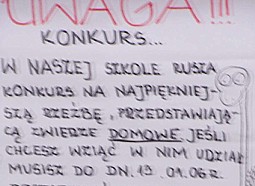 UWAGA!!!
KONKURS...
W NASZEJ SZKOLE RUSZA
KONKURS NA NAJPIĘKNIEJ-
SZĄ RZEŹBĘ, PRZEDSTAWIAJĄ-
CĄ ZWIERZE DOMOWE. JEŚLI
CHCESZ WZIĄĆ W NIM UDZIAŁ
MUSISZ DO DN. 19.01.06 R.